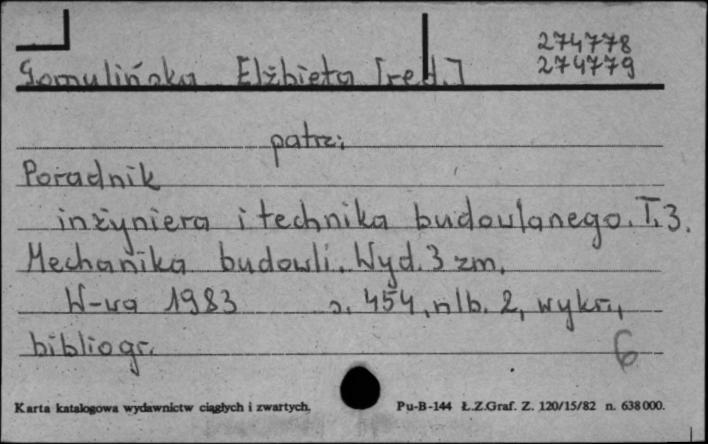 274778
Gomulińska Elżbieta [red.] 274779
patrz:
Poradnik
inżyniera i technika budowlanego. T. 3.
Mechanika budowli. Wyd. 3 zm.
W-wa 1983 s. 454, nlb. 2, wykr.,
bibliogr. 6
Karta katalogowa wydawnictw ciągłych i zwartych. Pu-B-144 Ł.Z.Graf. Z. 120/15/82 n. 638000.